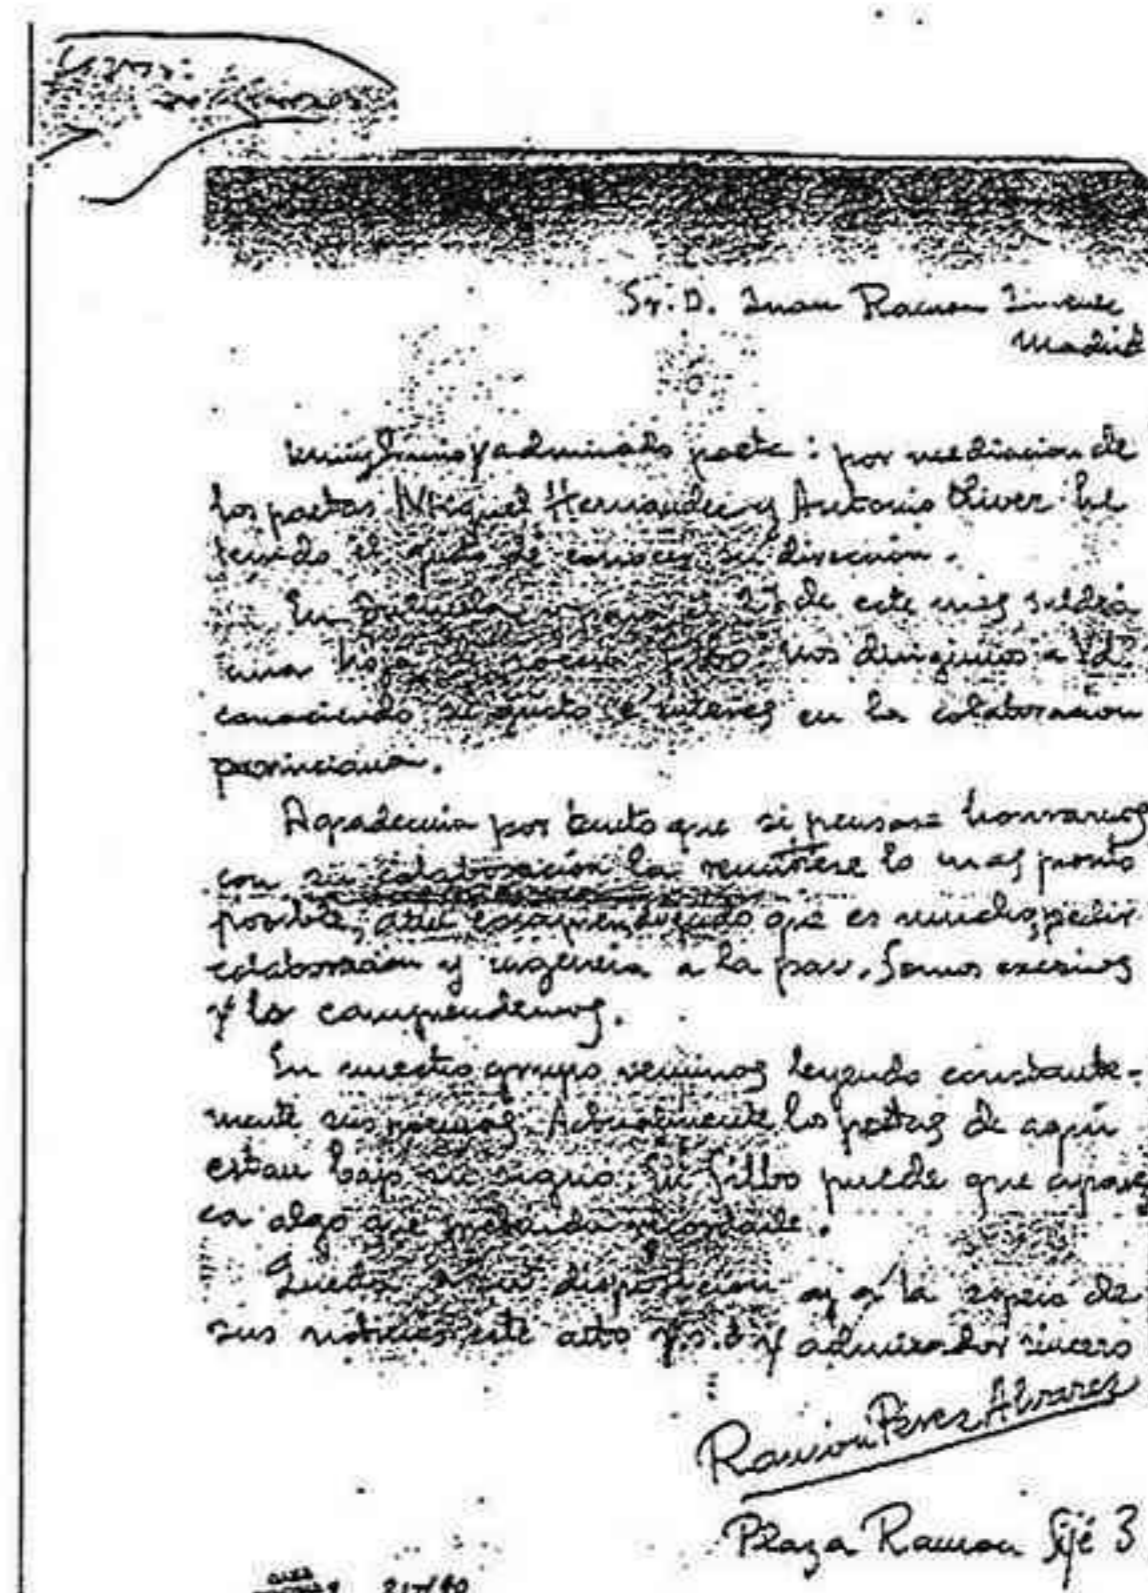 Sr. D. Juan Ramon Jimenez
Madrid
y admirado poeta: por mediacion de
los poetas Miguel Hernandez y Antonio Oliver he
tenido el gusto de conocer su dirección.
En Orihuela y para el de este mes saldrá
una hoja de Silbo. Nos dirigimos a Vd.
conociendo su gusto e interes en la colaboracion
provinciana.
Agradeceria por tanto que si pensase honrarnos
con su colaboración la remitiese lo mas pronto
posible, aun comprendiendo que es mucho pedir
colaboracion y urgencia a la par. Somos excesivos
y lo comprendemos.
En nuestro grupo venimos leyendo constante-
mente sus poemas. Actualmente los poetas de aquí
estan bajo su signo. En Silbo puede que aparez
ca algo que recordarle.
Queda a su disposicion y a la espera de
sus noticias este atto y s. s. y admirador sincero
Ramón Pérez Alvarez
Plaza Ramon Sijé 3